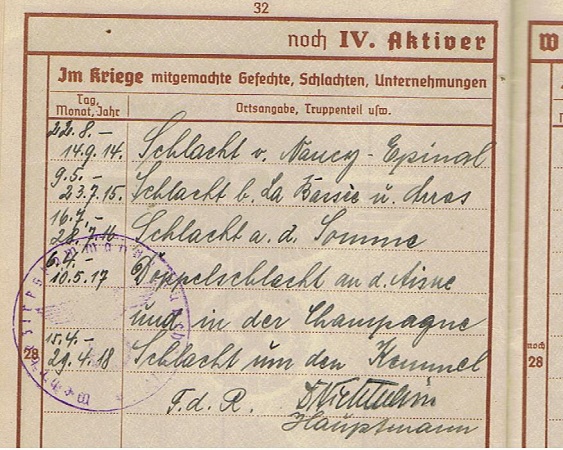 32
noch IV. Aktiver
W
Im Kriege mitgemachte Gefechte, Schlachten, Unternehmungen
Tag, Monat, Jahr
Ortsangabe, Truppenteil usw.
22.8.–
14.9.14. Schlacht v. Nancy-Epinal
9.5.–
23.7.15. Schlacht b. La Bassée u. Arras
16.7.–
28.7.16 Schlacht a. d. Somme
6.4.–
10.5.17 Doppelschlacht an d. Aisne
und in der Champagne
15.4.–
28 29.4.18 Schlacht um den Kemmel
noch
28
F. d. R.
Hauptmann